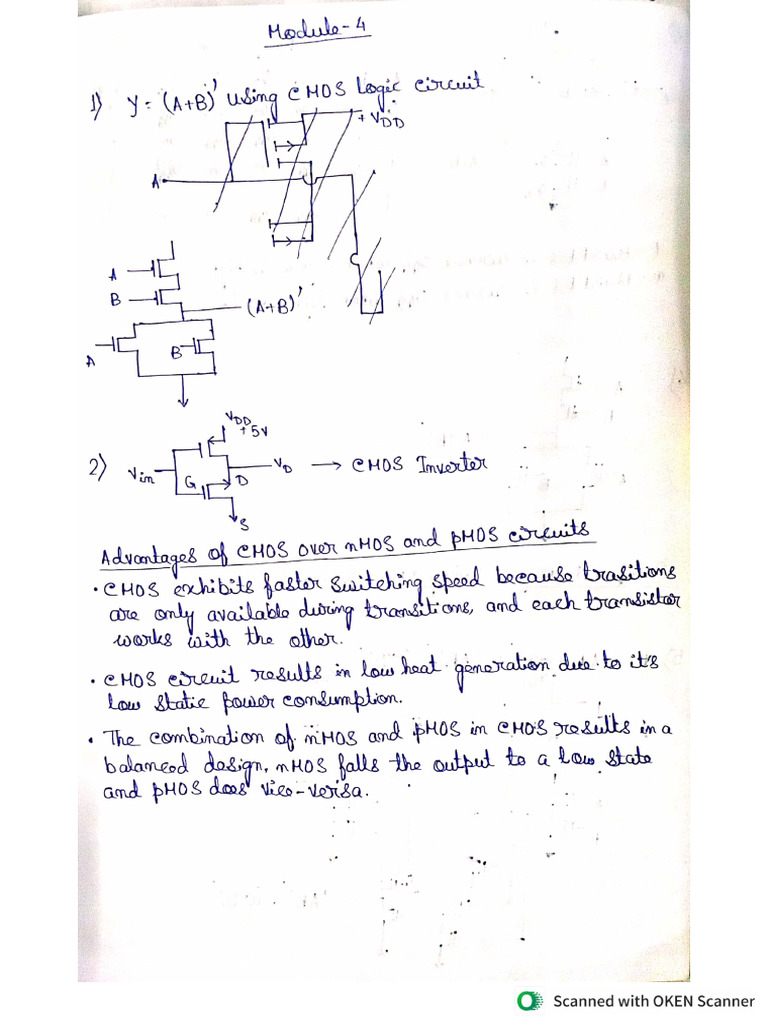 Module-4
1) Y = (A+B)' using CMOS Logic circuit
+VDD
A
A
B
(A+B)'
A
B
VDD
+5V
2) Vin
G
D
VD → CMOS Inverter
S
Advantages of CMOS over nMOS and pMOS circuits
• CMOS exhibits faster switching speed because trasitions
are only available during transitions, and each transistor
works with the other.
• CMOS circuit results in low heat generation due to it's
low static power consumption.
• The combination of nMOS and pMOS in CMOS results in a
balanced design, nMOS falls the output to a low state
and pMOS does vice-versa.
Scanned with OKEN Scanner